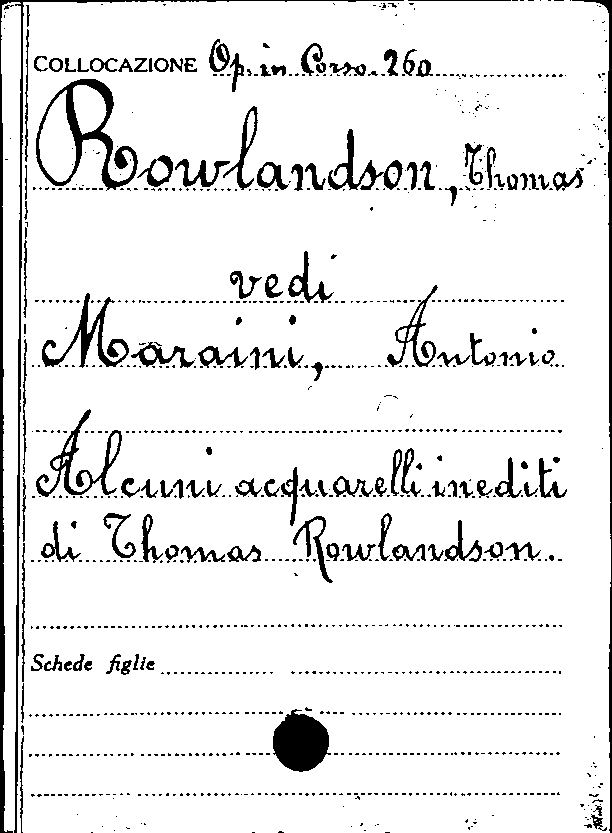 COLLOCAZIONE Op. in Corso. 260
Rowlandson, Thomas
vedi
Maraini, Antonio
Alcuni acquarelli inediti
di Thomas Rowlandson.
Schede figlie